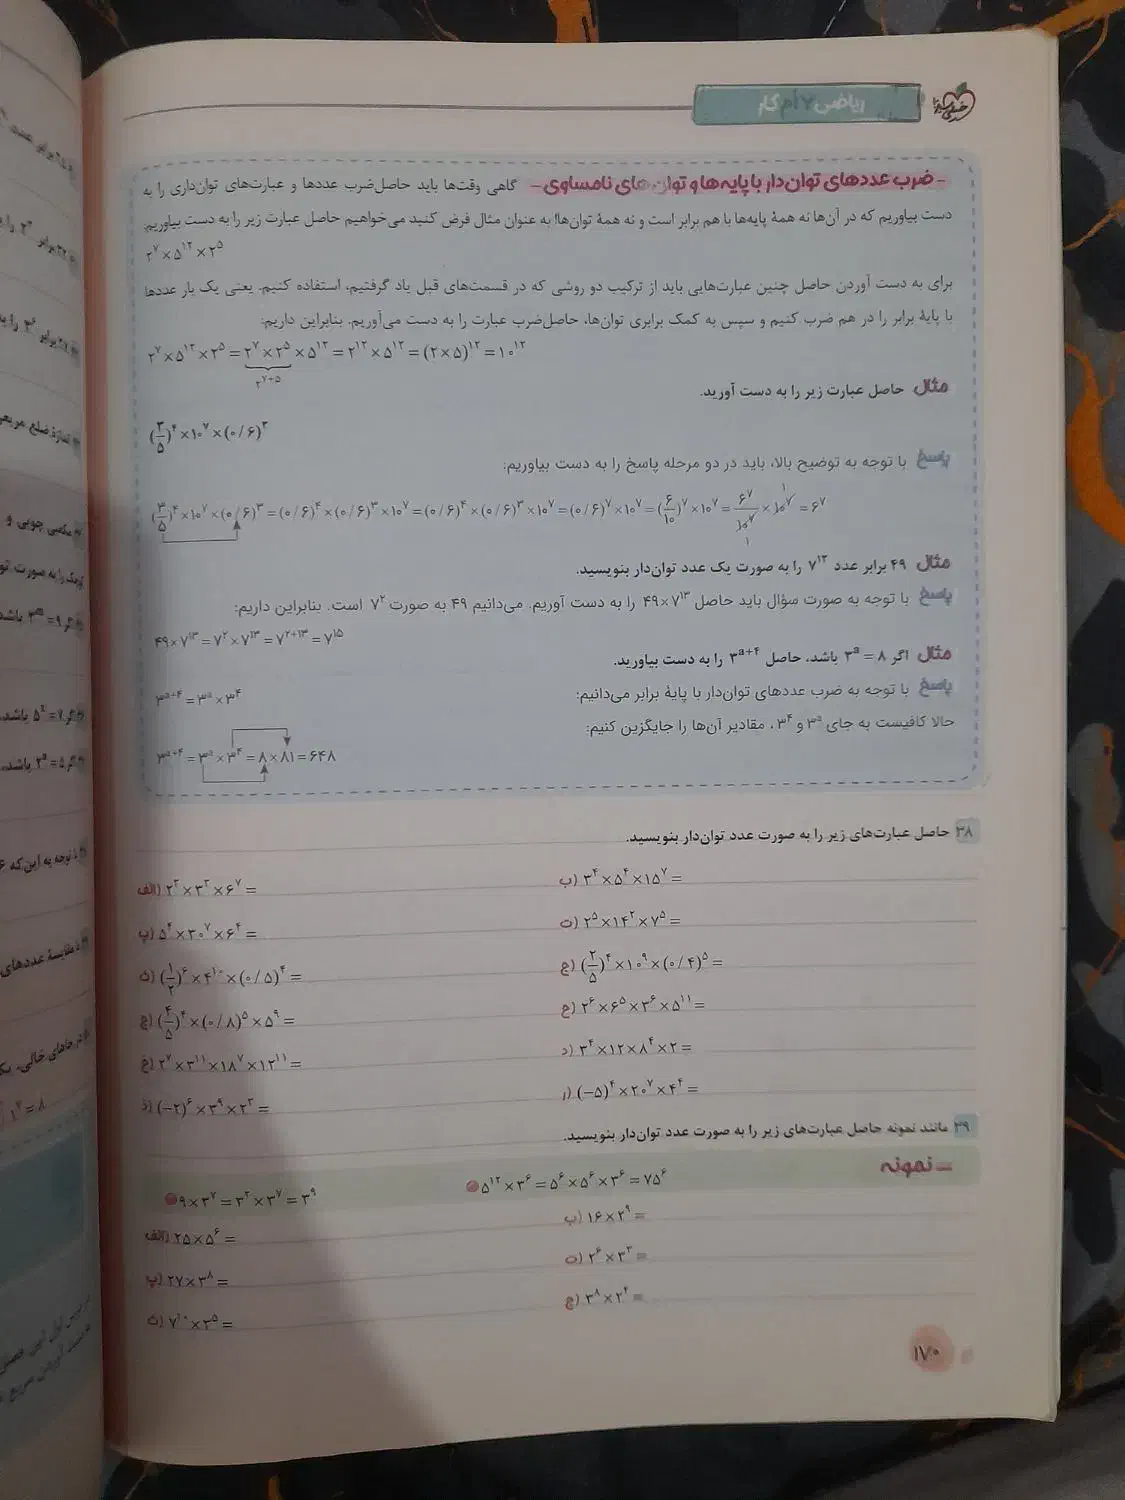 ریاضی ۷ام کار
- ضرب عددهای توان‌دار با پایه‌ها و توان‌های نامساوی - گاهی وقت‌ها باید حاصل‌ضرب عددها و عبارت‌های توان‌داری را به
دست بیاوریم که در آن‌ها نه همهٔ پایه‌ها با هم برابر است و نه همهٔ توان‌ها! به عنوان مثال فرض کنید می‌خواهیم حاصل عبارت زیر را به دست بیاوریم.
۲⁷ × ۵¹² × ۲⁵
برای به دست آوردن حاصل چنین عبارت‌هایی باید از ترکیب دو روشی که در قسمت‌های قبل یاد گرفتیم، استفاده کنیم. یعنی یک بار عددها
با پایهٔ برابر را در هم ضرب کنیم و سپس به کمک برابری توان‌ها، حاصل‌ضرب عبارت را به دست می‌آوریم. بنابراین داریم:
۲⁷ × ۵¹² × ۲⁵ = ۲⁷ × ۲⁵ × ۵¹² = ۲¹² × ۵¹² = (۲ × ۵)¹² = ۱۰¹²
۲⁷⁺⁵
مثال حاصل عبارت زیر را به دست آورید.
(۳/۵)⁴ × ۱۰⁷ × (۰/۶)³
پاسخ با توجه به توضیح بالا، باید در دو مرحله پاسخ را به دست بیاوریم:
(۳/۵)⁴ × ۱۰⁷ × (۰/۶)³ = (۰/۶)⁴ × (۰/۶)³ × ۱۰⁷ = (۰/۶)⁴ × (۰/۶)³ × ۱۰⁷ = (۰/۶)⁷ × ۱۰⁷ = (۶/۱۰)⁷ × ۱۰⁷ = ۶⁷/۱۰⁷ × ۱۰⁷ = ۶⁷
مثال ۴۹ برابر عدد ۷¹³ را به صورت یک عدد توان‌دار بنویسید.
پاسخ با توجه به صورت سؤال باید حاصل ۴۹ × ۷¹³ را به دست آوریم. می‌دانیم ۴۹ به صورت ۷² است. بنابراین داریم:
۴۹ × ۷¹³ = ۷² × ۷¹³ = ۷²⁺¹³ = ۷¹⁵
مثال اگر ۳ᵃ = ۸ باشد، حاصل ۳ᵃ⁺⁴ را به دست بیاورید.
پاسخ با توجه به ضرب عددهای توان‌دار با پایهٔ برابر می‌دانیم:
۳ᵃ⁺⁴ = ۳ᵃ × ۳⁴
حالا کافیست به جای ۳ᵃ و ۳⁴، مقادیر آن‌ها را جایگزین کنیم:
۳ᵃ⁺⁴ = ۳ᵃ × ۳⁴ = ۸ × ۸۱ = ۶۴۸
۳۸ حاصل عبارت‌های زیر را به صورت عدد توان‌دار بنویسید.
الف) ۲³ × ۳³ × ۶⁷ =
ب) ۳⁴ × ۵⁴ × ۱۵⁷ =
پ) ۵⁴ × ۳۰⁷ × ۶⁴ =
ت) ۲⁵ × ۱۴² × ۷⁵ =
ث) (۱/۲)⁶ × ۴¹⁰ × (۰/۵)⁴ =
ج) (۲/۵)⁴ × ۱۰⁹ × (۰/۴)⁵ =
چ) (۴/۵)⁴ × (۰/۸)⁵ × ۵⁹ =
ح) ۲⁶ × ۶⁵ × ۳⁶ × ۵¹¹ =
خ) ۲⁷ × ۳¹¹ × ۱۸⁷ × ۱۲¹¹ =
د) ۳⁴ × ۱۲ × ۸⁴ × ۲ =
ذ) (−۲)⁶ × ۳⁹ × ۲³ =
ر) (−۵)⁴ × ۲۰⁷ × ۴⁴ =
۳۹ مانند نمونه حاصل عبارت‌های زیر را به صورت عدد توان‌دار بنویسید.
نمونه
۹ × ۳⁷ = ۳² × ۳⁷ = ۳⁹
۵¹² × ۳⁶ = ۵⁶ × ۵⁶ × ۳⁶ = ۷۵⁶
الف) ۲۵ × ۵⁶ =
ب) ۱۶ × ۲⁹ =
پ) ۲۷ × ۳⁸ =
ت) ۲⁶ × ۳³ =
ث) ۷¹⁰ × ۳⁵ =
ج) ۳⁸ × ۲⁴ =
۱۷۰